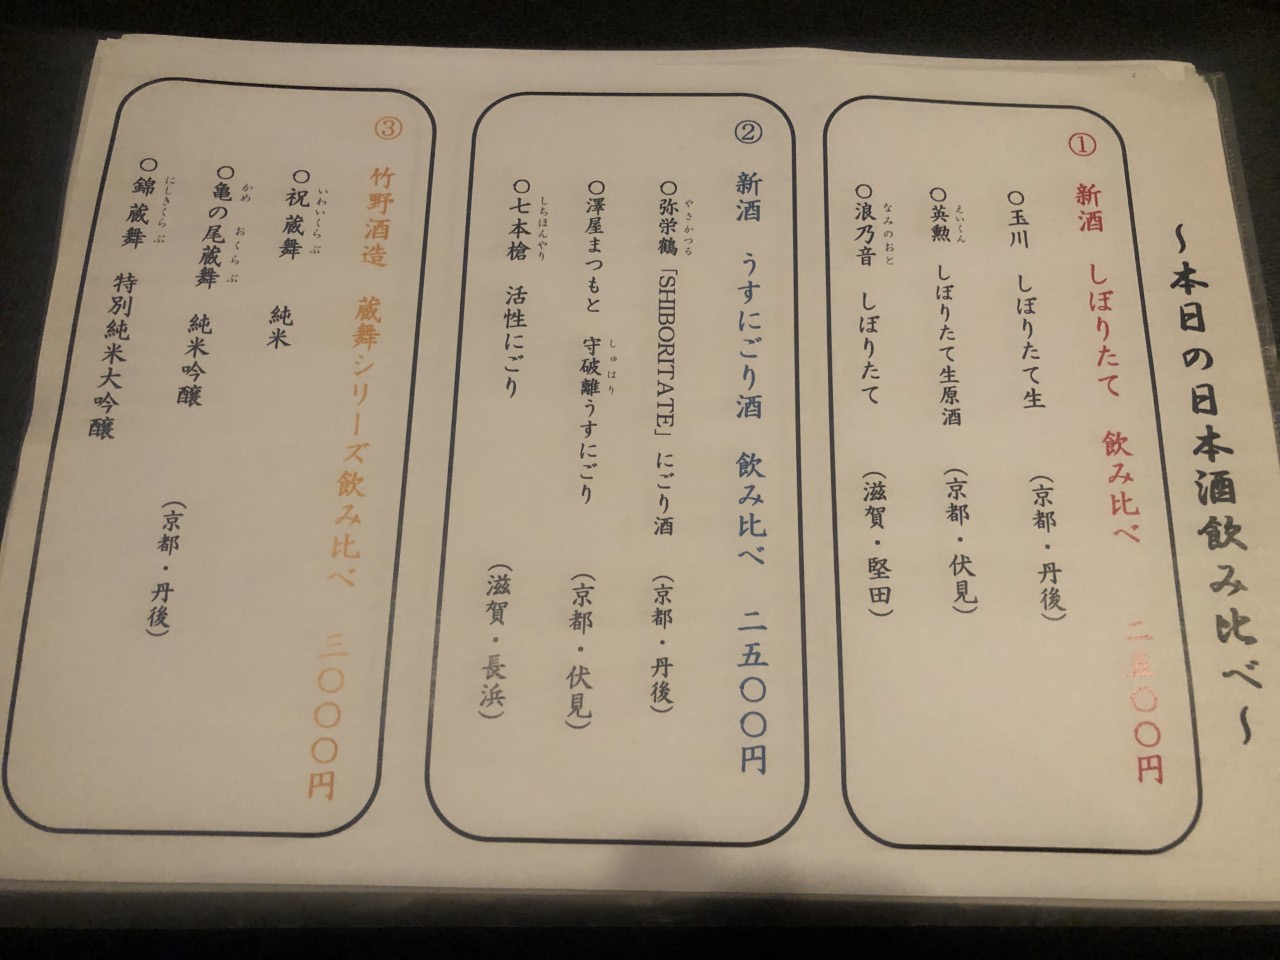 ～本日の日本酒飲み比べ～
① 新酒 しぼりたて 飲み比べ 二五〇〇円
〇玉川 しぼりたて生 （京都・丹後）
えいくん
〇英勲 しぼりたて生原酒 （京都・伏見）
なみのおと
〇浪乃音 しぼりたて （滋賀・堅田）
② 新酒 うすにごり酒 飲み比べ 二五〇〇円
やさかつる
〇弥栄鶴「SHIBORITATE」にごり酒 （京都・丹後）
しゅはり
〇澤屋まつもと 守破離うすにごり （京都・伏見）
しちほんやり
〇七本槍 活性にごり （滋賀・長浜）
③ 竹野酒造 蔵舞シリーズ飲み比べ 三〇〇〇円
いわいくらぶ
〇祝蔵舞 純米
かめ おくらぶ
〇亀の尾蔵舞 純米吟醸 （京都・丹後）
にしきくらぶ
〇錦蔵舞 特別純米大吟醸